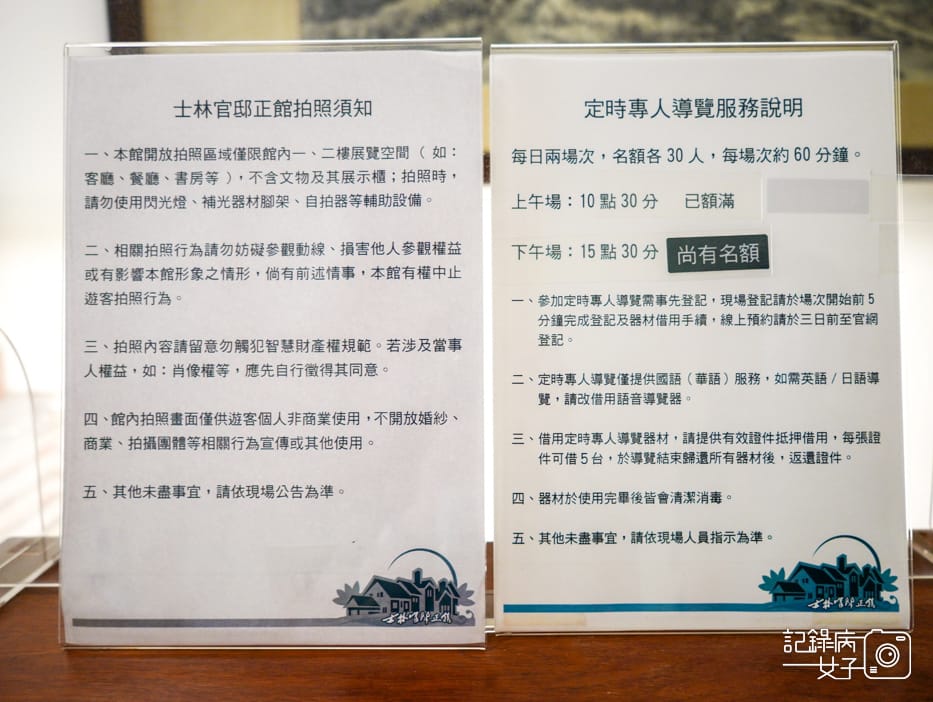 士林官邸正館拍照須知
一、本館開放拍照區域僅限館內一、二樓展覽空間（ 如：
客廳、餐廳、書房等 ），不含文物及其展示櫃；拍照時，
請勿使用閃光燈、補光器材腳架、自拍器等輔助設備。
二、相關拍照行為請勿妨礙參觀動線、損害他人參觀權益
或有影響本館形象之情形，倘有前述情事，本館有權中止
遊客拍照行為。
三、拍照內容請留意勿觸犯智慧財產權規範。若涉及當事
人權益，如：肖像權等，應先自行徵得其同意。
四、館內拍照畫面僅供遊客個人非商業使用，不開放婚紗、
商業、拍攝團體等相關行為宣傳或其他使用。
五、其他未盡事宜，請依現場公告為準。
士林官邸正館
定時專人導覽服務說明
每日兩場次，名額各 30 人，每場次約 60 分鐘。
上午場：10 點 30 分 已額滿
下午場：15 點 30 分 尚有名額
一、參加定時專人導覽需事先登記，現場登記請於場次開始前 5
分鐘完成登記及器材借用手續，線上預約請於三日前至官網
登記。
二、定時專人導覽僅提供國語（華語）服務，如需英語 / 日語導
覽，請改借用語音導覽器。
三、借用定時專人導覽器材，請提供有效證件抵押借用，每張證
件可借 5 台，於導覽結束歸還所有器材後，返還證件。
四、器材於使用完畢後皆會清潔消毒。
五、其他未盡事宜，請依現場人員指示為準。
士林官邸正館
記錄病
女子